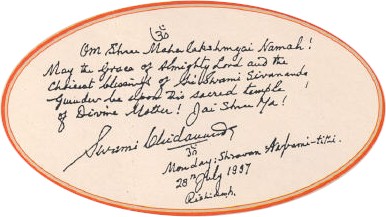 ॐ
Om Shree Mahalakshmyai Namah!
May the Grace of Almighty Lord and the
choicest blessings of Sri Swami Sivananda
Gurudev be upon this sacred temple
of Divine Mother! Jai Shree Ma!
Swami Chidananda
ॐ
Monday; Shravan Ashtami-tithi.
28th July 1997
Rishikesh.